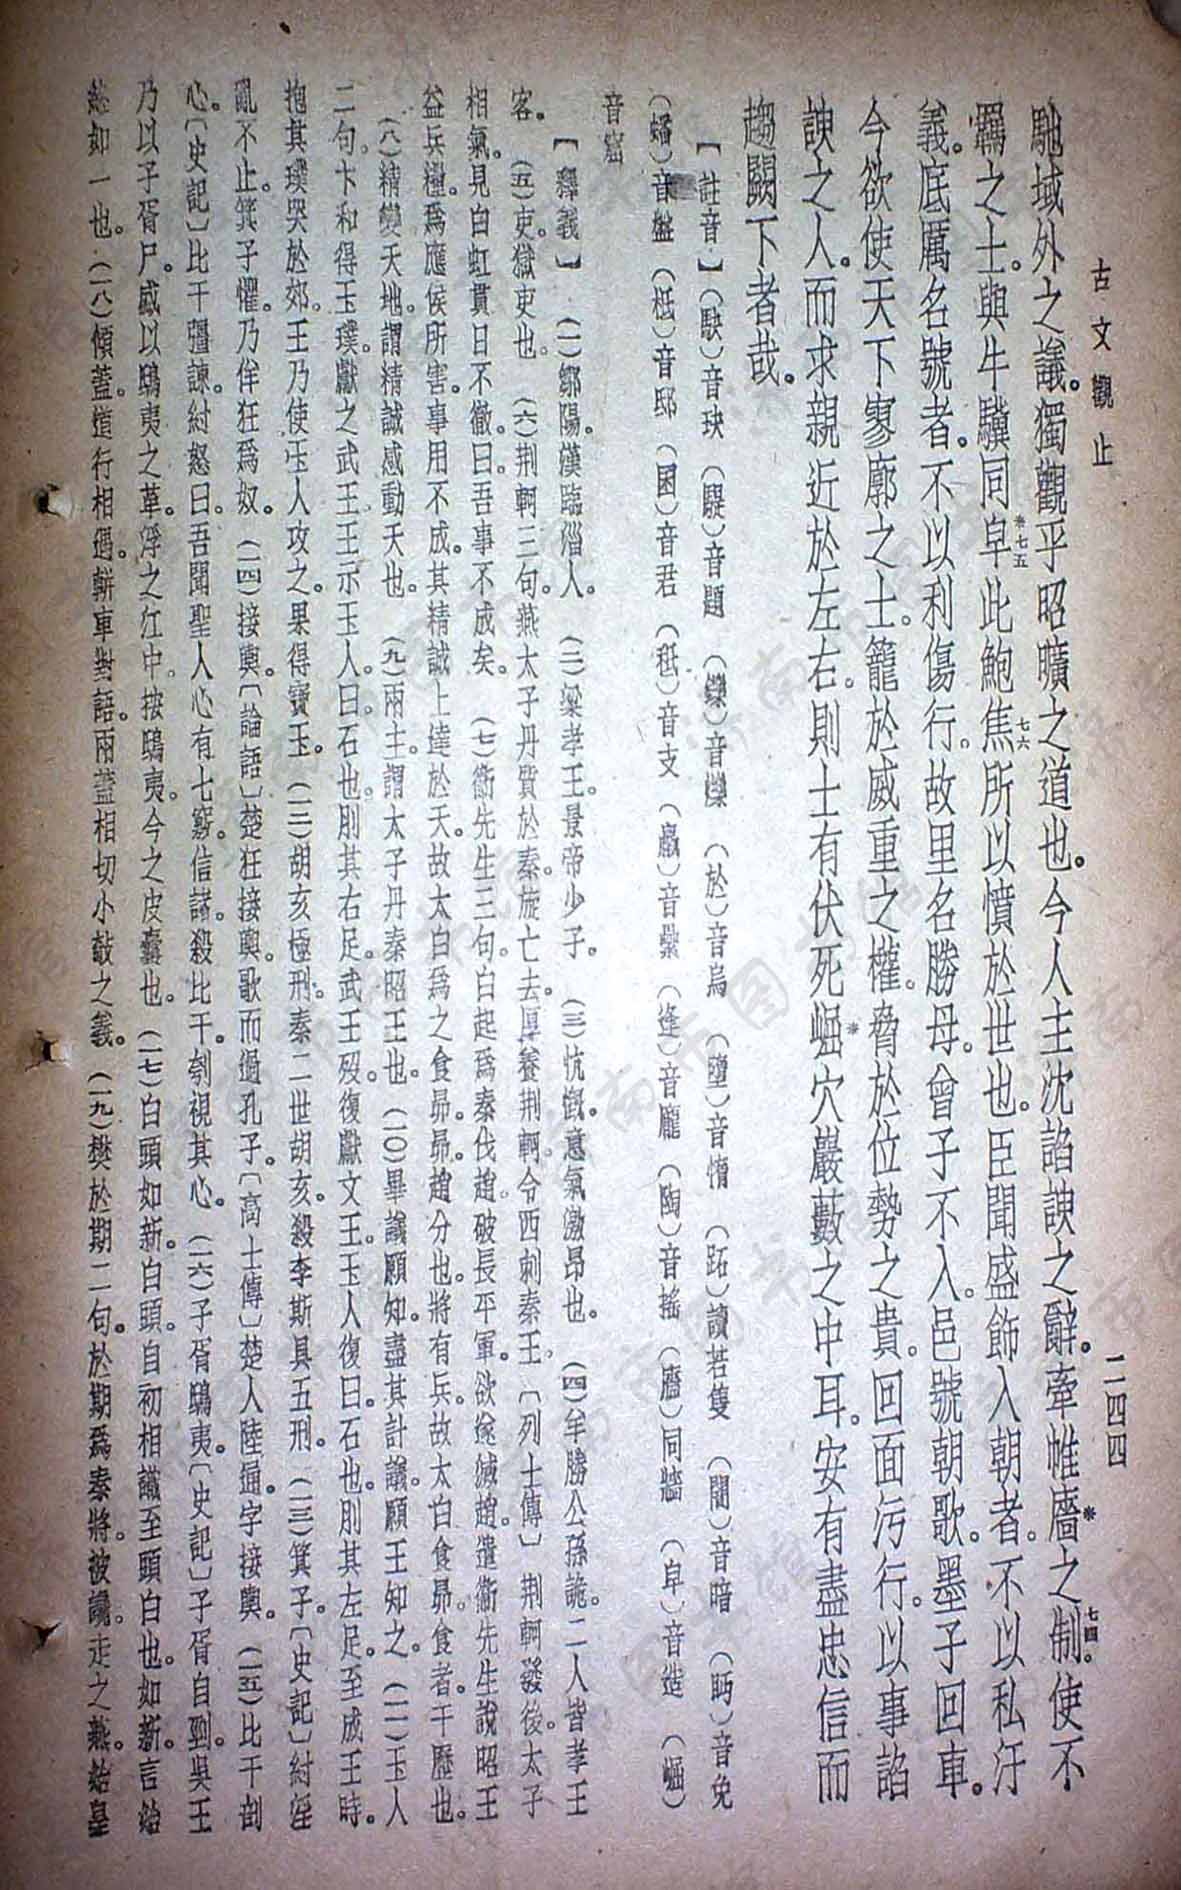 古文觀止
二四四
馳域外之議。獨觀乎昭曠之道也。今人主沈諂諛之辭。牽帷廧※之制。七四使不
羈之士。與牛驥同皁※七五此鮑焦七六所以憤於世也。臣聞盛飾入朝者。不以私汙
義。底厲名號者。不以利傷行。故里名勝母。曾子不入。邑號朝歌。墨子回車。
今欲使天下寥廓之士。籠於威重之權。脅於位勢之貴。回面污行。以事諂
諛之人。而求親近於左右。則士有伏死崛※穴巖藪之中耳。安有盡忠信而
趨闕下者哉。
【註音】（駃）音玦　（騠）音題　（鑠）音爍　（於）音烏　（墮）音惰　（跖）讀若隻　（闇）音暗　（眄）音免
（蟠）音盤　（柢）音邸　（囷）音君　（秪）音支　（纍）音纍　（逄）音龐　（陶）音搖　（廧）同牆　（皁）音造　（崛）
音窟
【釋義】　（一）鄒陽。漢臨淄人。　（二）梁孝王。景帝少子。　（三）忼慨。意氣激昂也。　（四）羊勝公孫詭。二人皆孝王
客。　（五）吏。獄吏也。　（六）荆軻三句。燕太子丹質於秦。旋亡去。厚養荆軻。令西刺秦王〔列士傳〕荆軻發後。太子
相氣。見白虹貫日不徹。曰。吾事不成矣。　（七）衞先生三句。白起爲秦伐趙。破長平軍。欲遂滅趙。遣衞先生說昭王
益兵糧。爲應侯所害。事用不成。其精誠上達於天。故太白爲之食昴。昴。趙分也。將有兵。故太白食昴。食者。干歷也。
（八）精變天地。謂精誠感動天也。　（九）兩主。謂太子丹秦昭王也。（一〇）畢議願知。盡其計議。願王知之。（一一）玉人
二句。卞和得玉璞。獻之武王。王示玉人。曰。石也。刖其右足。武王歿。復獻文王。玉人復曰。石也。刖其左足。至成王時。
抱其璞哭於郊。王乃使玉人攻之。果得寶玉。（一二）胡亥極刑。秦二世胡亥。殺李斯具五刑。（一三）箕子。〔史記〕紂淫
亂不止。箕子懼。乃佯狂爲奴。（一四）接輿。〔論語〕楚狂接輿。歌而過孔子。〔高士傳〕楚人陸通。字接輿。（一五）比干剖
心。〔史記〕比干彊諫。紂怒曰。吾聞聖人心有七竅。信諸。殺比干。刳視其心。（一六）子胥鴟夷。〔史記〕子胥自剄。吳王
乃以子胥尸。盛以鴟夷之革。浮之江中。按鴟夷。今之皮囊也。（一七）白頭如新。白頭。自初相識至頭白也。如新。言始
終如一也。（一八）傾蓋。道行相遇。輧車對語。兩蓋相切小敧之義。（一九）樊於期二句。於期爲秦將。被讒。走之燕。始皇